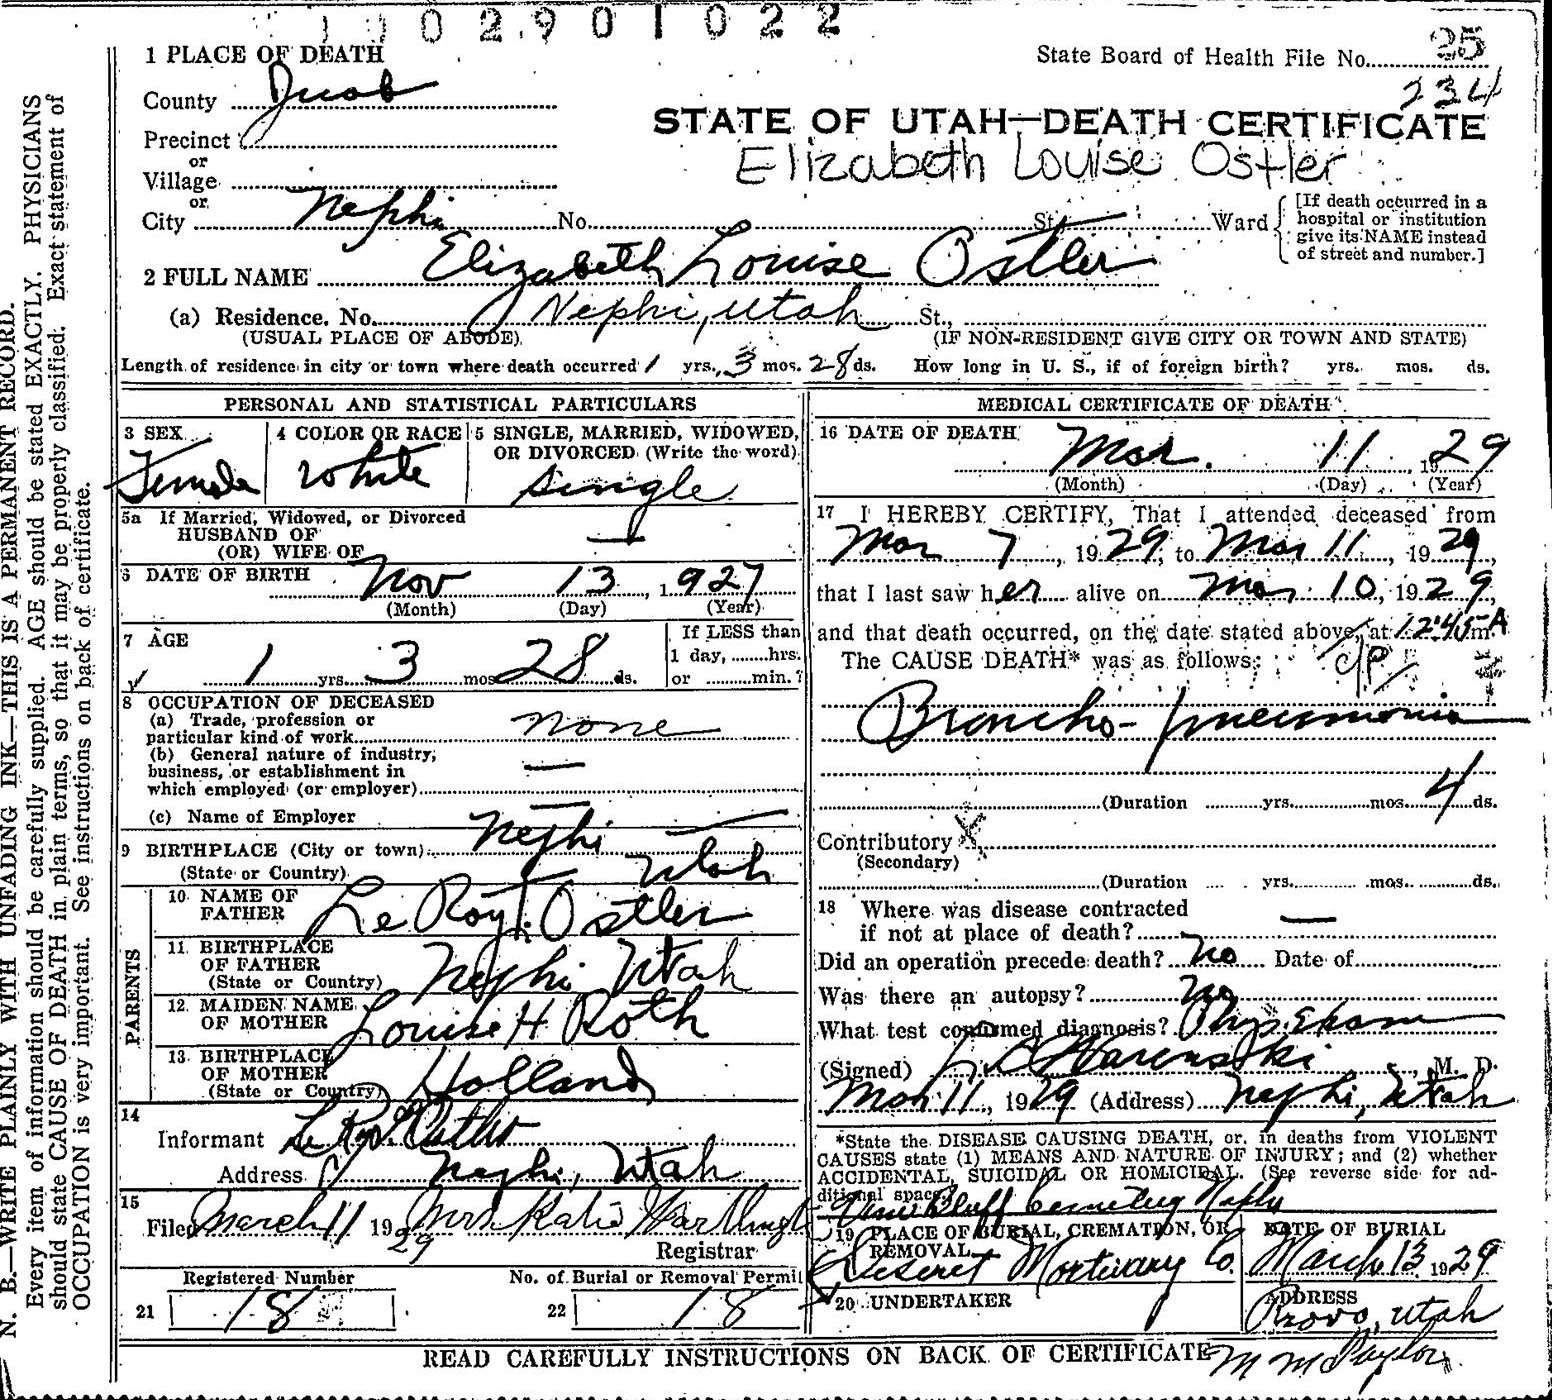 1 1 0 2 9 0 1 0 2 2
1 PLACE OF DEATH
State Board of Health File No. 25
234
County Juab
STATE OF UTAH—DEATH CERTIFICATE
Precinct
or
Elizabeth Louise Ostler
Village
or
City Nephi No. St. Ward
[If death occurred in a
hospital or institution
give its NAME instead
of street and number.]
2 FULL NAME Elizabeth Louise Ostler
(a) Residence. No. Nephi, Utah St.,
(USUAL PLACE OF ABODE) (IF NON-RESIDENT GIVE CITY OR TOWN AND STATE)
Length of residence in city or town where death occurred 1 yrs. 3 mos. 28 ds. How long in U. S., if of foreign birth? yrs. mos. ds.
PERSONAL AND STATISTICAL PARTICULARS
3 SEX
Female
4 COLOR OR RACE
White
5 SINGLE, MARRIED, WIDOWED,
OR DIVORCED (Write the word)
single
5a If Married, Widowed, or Divorced
HUSBAND OF
(OR) WIFE OF —
6 DATE OF BIRTH Nov 13, 1927
(Month) (Day) (Year)
7 AGE
1 yrs. 3 mos 28 ds.
If LESS than
1 day, ........hrs.
or .........min.?
8 OCCUPATION OF DECEASED
(a) Trade, profession or
particular kind of work none
(b) General nature of industry,
business, or establishment in
which employed (or employer) —
(c) Name of Employer —
9 BIRTHPLACE (City or town) Nephi
(State or Country) Utah
PARENTS
10 NAME OF
FATHER Le Roy T. Ostler
11 BIRTHPLACE
OF FATHER
(State or Country) Nephi Utah
12 MAIDEN NAME
OF MOTHER Louise H Roth
13 BIRTHPLACE
OF MOTHER
(State or Country) Holland
14
Informant Le Roy T. Ostler
Address Nephi, Utah
15
Filed March 11 1929 Mrs. Katie
Registrar
Registered Number
21 18
No. of Burial or Removal Permit
22 18
MEDICAL CERTIFICATE OF DEATH
16 DATE OF DEATH Mar. 11 1929
(Month) (Day) (Year)
17 I HEREBY CERTIFY, That I attended deceased from
Mar 7, 1929, to Mar 11, 1929,
that I last saw her alive on Mar 10, 1929,
and that death occurred, on the date stated above, at 12:45 A m.
The CAUSE DEATH* was as follows:
Broncho-pneumonia
(Duration yrs. mos. 4 ds.
Contributory
(Secondary)
(Duration yrs. mos. ds.
18 Where was disease contracted
if not at place of death? —
Did an operation precede death? no Date of
Was there an autopsy? no
What test confirmed diagnosis? Phys. Exam
(Signed) M. D.
Mar 11, 1929 (Address) Nephi, Utah
*State the DISEASE CAUSING DEATH, or in deaths from VIOLENT
CAUSES state (1) MEANS AND NATURE OF INJURY; and (2) whether
ACCIDENTAL, SUICIDAL OR HOMICIDAL. (See reverse side for ad-
ditional space.)
Vine Bluff Cemetery Nephi
19 PLACE OF BURIAL, CREMATION, OR
REMOVAL
DATE OF BURIAL
March 13 1929
Deseret Mortuary Co.
20 UNDERTAKER
ADDRESS
Provo, Utah
READ CAREFULLY INSTRUCTIONS ON BACK OF CERTIFICATE
N. B.—WRITE PLAINLY WITH UNFADING INK—THIS IS A PERMANENT RECORD.
Every item of information should be carefully supplied. AGE should be stated EXACTLY. PHYSICIANS
should state CAUSE OF DEATH in plain terms, so that it may be properly classified. Exact statement of
OCCUPATION is very important. See instructions on back of certificate.